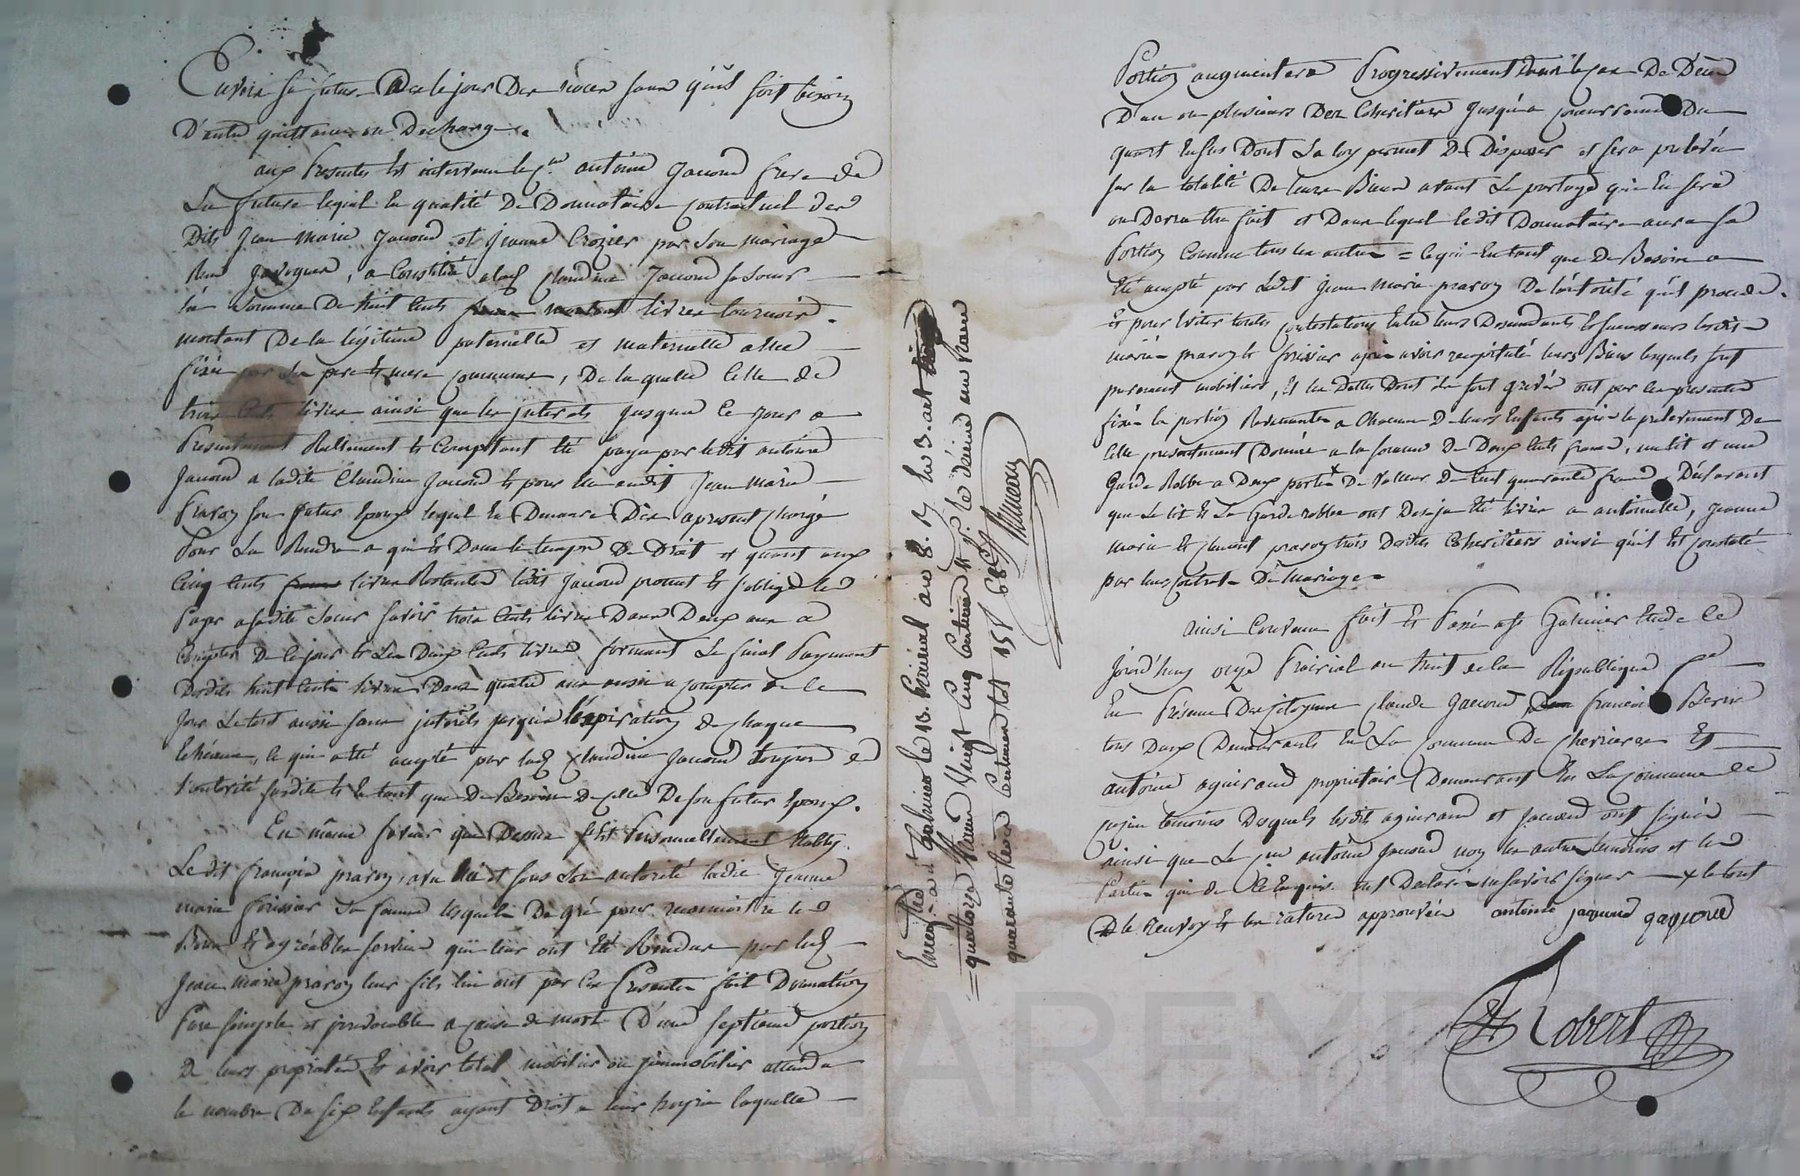 sa future Dès le jour Des noces sans qu'il soit besoin
D'autre quittance ou Decharge.
aux Presentes Est intervenu le Cen antoine Jacoud frere de
La future lequel En qualité De Donnataire contractuel des
Dits Jean Marie Jacoud et Jeanne Crozier par son mariage
a Constitué a lad. Claudine Jacoud sa soeur
la somme De huit Cents livres tournois
montant De la légitime paternelle et maternelle a elle
fixée par Les pere & mere communs, De laquelle Celle de
trois Cents livres ainsi que les interets jusqu'a ce jour a
Présentement Réellement & Comptant été payé par ledit antoine
Jacoud a ladite Claudine Jacoud & pour elle audit Jean Marie
son futur Epoux lequel En Demeure Dès apresent chargé
Pour La Rendre a qui & Dans le temps De Droit et quant aux
Cinq Cents livres Restantes ledit Jacoud promet & s'oblige les
Payer a sadite Soeur savoir trois Cents livres Dans Deux ans a
Compter De ce jour & Les Deux Cents livres formant Le final Payement
Desdits huit Cents livres Dans quatre ans aussi a compter de ce
Jour Le tout aussi sans interêts jusqu'a l'expiration de chaque
Echéance, ce qui a été accepté par lad. Claudine Jacoud toujours de
l'autorité susdite & En tant que De Besoin de celle De son futur Epoux.
En même faveur que Dessus s'est Personnellement Etably
Le dit françois pravoz, avec lui et sous Son autorité ladite Jeanne
marie forissier Sa femme lesquels De gré pour reconnoitre les
Bons & agréables services qui leur ont Eté Rendus par led.
Jean marie pravoz leur fils lui ont par les Presentes fait Donnation
Pure simple et irrévocable a cause de mort D'une septieme portion
De leurs propriétés & avoir total mobilier ou immobilier attendu
le nombre De six Enfants ayant Droit a leur hoyrie laquelle
Enregistré à St Galmier le 13. Prairial an 8.
quatorze francs Vingt Cinq Centimes
quarante trois Centimes
Portion augmentera Progressivement Dans le cas De Décès
D'un ou plusieurs Des Coheritiers jusqu'a concurrence Du
quart En sus Dont La loy permet De Disposer et sera prelevée
sur la totalité De leurs Biens avant Le partage qui En sera
ou Devra Etre fait et Dans lequel ledit Donnataire aura sa
Portion Comme tous les autres = ce qui En tant que De Besoin a
Eté accepté par Ledit Jean marie pravoz De l'autorité qu'il procede.
Et pour Eviter toutes contestations Entre leurs Descendants & successeurs lesdits
mariés pravoz & forissier après avoir recapitulé leurs Biens lesquels sont
purement mobiliers, Et les Dettes Dont ils sont grévés ont par les presentes
fixé la portion Revenante a Chacun De leurs Enfants après le prelevement De
Celle presentement Donnée a la somme De Deux Cents francs, un lit et une
Garde Robbe a Deux portes De valeur De Cent quarante francs, Déclarant
que Le lit & La Garde robbe ont Deja Eté livrés a antoinette, Jeanne
marie & pravoz trois Desdits Coheritiers ainsi qu'il Est constaté
par leurs Contrats De Mariage.
ainsi Convenu fait & Passé a St Galmier Etude Ce
Jourd'huy onze Prairial an huit de la République fse
En Présence Des Citoyens Claude Jacoud, françois
tous Deux Demeurants En La Commune De Chevrieres Et
antoine aguiraud propriétaire Demeurant En La Commune de
temoins Desquels lesdits aguiraud et Jacoud ont signés
ainsi que Le Cen antoine Jacoud non les autres temoins et les
Parties qui de Ce Enquis ont Declaré ne savoir signer
le renvoy & les ratures approuvés antoine jacoud gacoud
Robert